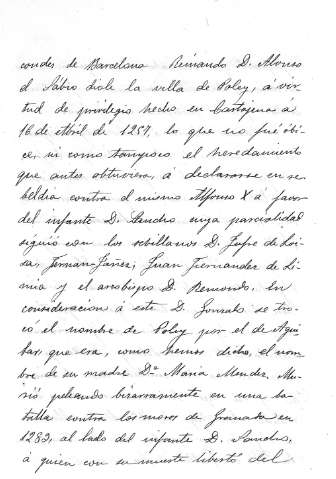 condes de Barcelona Reinando D. Alonso
el Sábio dióle la villa de Poley, á vir-
tud de privilegio hecho en Cartajena á
16 de Abril de 1257, lo que no fué óbi-
ce, ni como tampoco el heredamiento
que antes obtuviera, á declararse en re-
beldia contra el mismo Alfonso X á favor
del infante D. Sancho cuya parcialidad
siguió con los sevillanos D. Jufre de Loi-
sa, Fernan-Yañez, Juan Fernandez de Li-
mia y el arzobispo D. Remondo. En
consideracion á este D. Gonzalo se tro-
có el nombre de Poley por el de Agui-
lar, que era, como hemos dicho, el nom-
bre de su madre Dª Maria Mendez. Mu-
rió peleando bizarramente en una ba-
talla contra los moros de Granada en
1283, al lado del infante D. Sancho,
á quien con su muerte libertó del